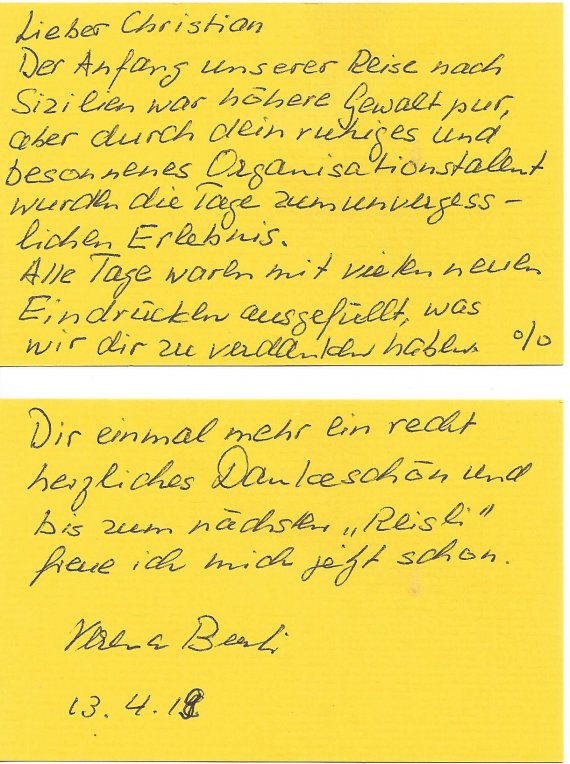 Lieber Christian
Der Anfang unserer Reise nach
Sizilien war höhere Gewalt pur,
aber durch dein ruhiges und
besonnenes Organisationstalent
wurden die Tage zum unvergess-
lichen Erlebnis.
Alle Tage waren mit vielen neuen
Eindrücken ausgefüllt, was
wir dir zu verdanken haben. o/o
Dir einmal mehr ein recht
herzliches Dankeschön und
bis zum nächsten „Reisli"
freue ich mich jetzt schon.
Verena
13.4.18